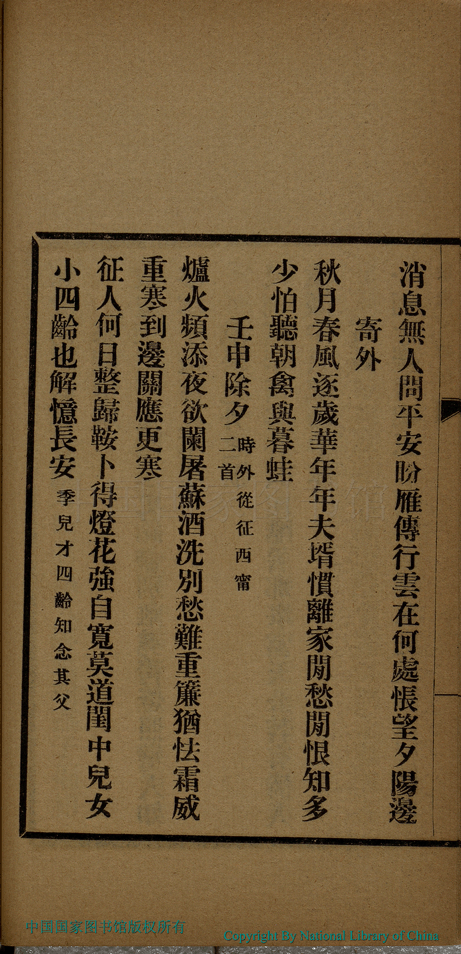 消息無人問平安盼雁傳行雲在何處悵望夕陽邊
寄外
秋月春風逐歲華年年夫壻慣離家閒愁閒恨知多
少怕聽朝禽與暮蛙
壬申除夕時外從征西甯二首
爐火頻添夜欲闌屠蘇酒洗別愁難重簾猶怯霜威
重寒到邊關應更寒
征人何日整歸鞍卜得燈花強自寬莫道閨中兒女
小四齡也解憶長安季兒才四齡知念其父
中国国家图书馆版权所有
Copyright By National Library of China